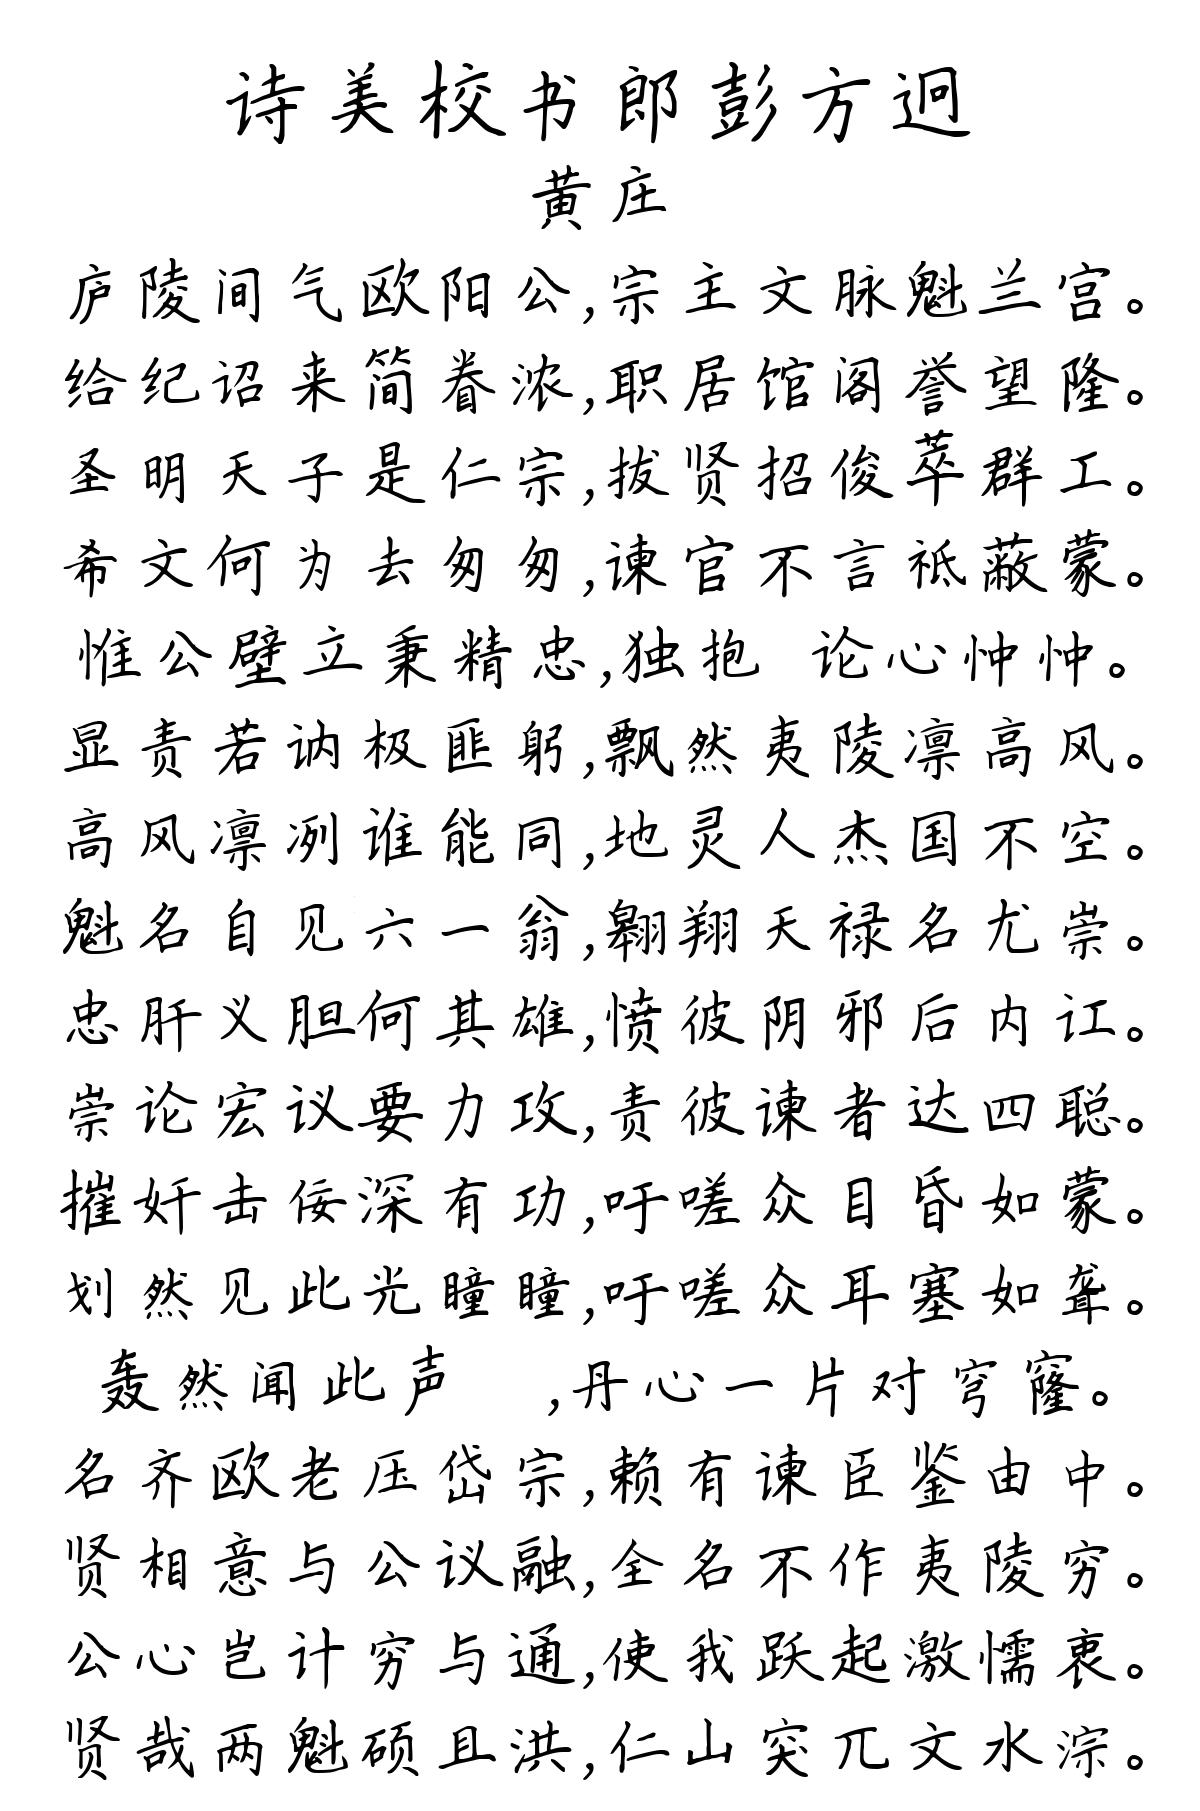 诗美校书郎彭方迥
黄庄
庐陵间气欧阳公,宗主文脉魁兰宫。
给纪诏来简眷浓,职居馆阁誉望隆。
圣明天子是仁宗,拔贤招俊萃群工。
希文何为去匆匆,谏官不言祗蔽蒙。
惟公壁立秉精忠,独抱 论心忡忡。
显责若讷极匪躬,飘然夷陵凛高风。
高风凛冽谁能同,地灵人杰国不空。
魁名自见六一翁,翱翔天禄名尤崇。
忠肝义胆何其雄,愤彼阴邪后内讧。
崇论宏议要力攻,责彼谏者达四聪。
摧奸击佞深有功,吁嗟众目昏如蒙。
划然见此光瞳瞳,吁嗟众耳塞如聋。
轰然闻此声 ,丹心一片对穹窿。
名齐欧老压岱宗,赖有谏臣鉴由中。
贤相意与公议融,全名不作夷陵穷。
公心岂计穷与通,使我跃起激懦衷。
贤哉两魁硕且洪,仁山突兀文水淙。